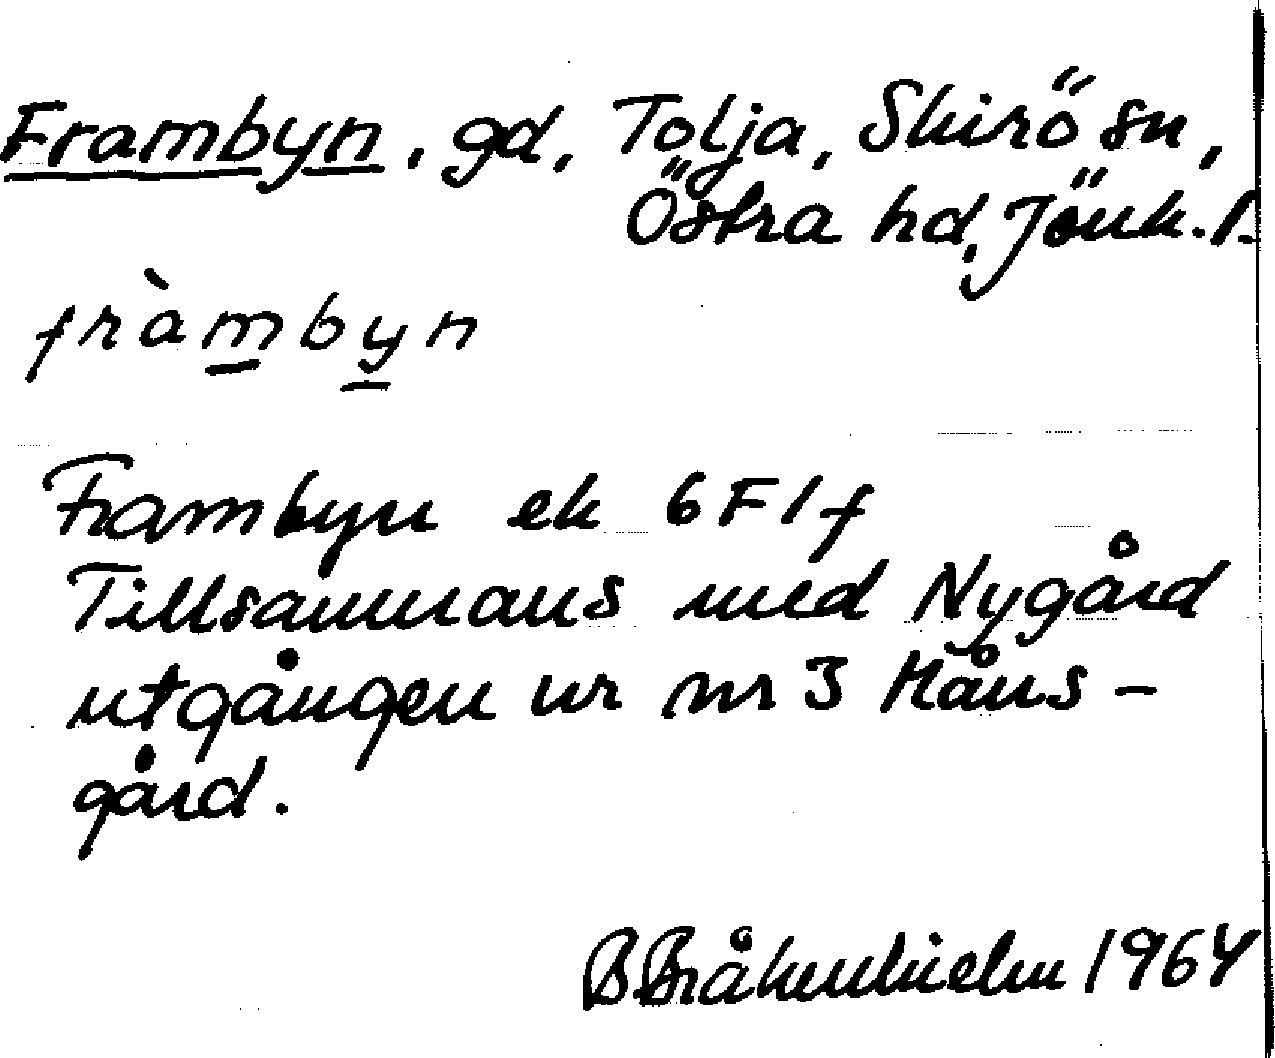 Frambyn, gd, Tolja, Skirö sn,
Östra hd, Jönk. l.
fràmbyn
Frambyn ek 6 F 1 f
Tillsammans med Nygård
utgången ur nr 3 Måns-
gård.
B Bråkenhielm 1964